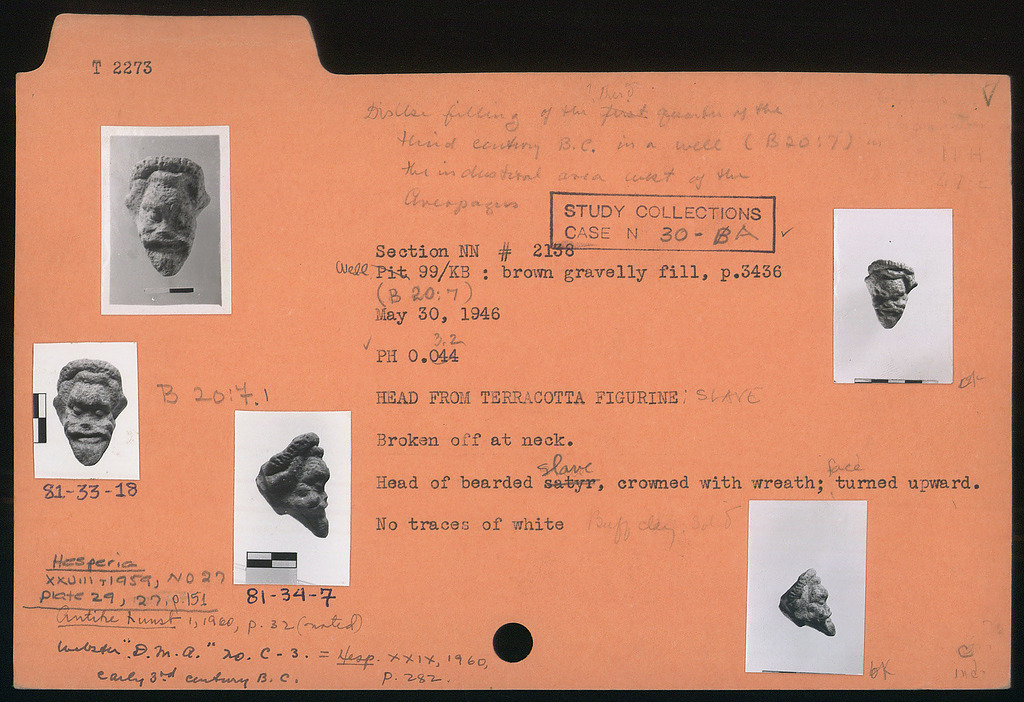 T 2273
filling of the first quarter of the
third century B.C. in a well (B 20:7) in
the industrial area west of the
Areopagus
STUDY COLLECTIONS
CASE N 30-BA
Section NN # 2138
Well Pit 99/KB : brown gravelly fill, p.3436
(B 20:7)
May 30, 1946
3.2
PH 0.044
HEAD FROM TERRACOTTA FIGURINE: SLAVE
Broken off at neck.
slave face
Head of bearded satyr, crowned with wreath; turned upward.
No traces of white Buff clay. Solid
B 20:7.1
81-33-18
81-34-7
Hesperia
XXVIII, 1959, NO 27
Plate 29, 27, p.151
Antike Kunst 1, 1960, p. 32 (noted)
Webster "D.M.A." no. C-3. = Hesp. XXIX, 1960,
early 3rd century B.C. p. 282.
C
ind.